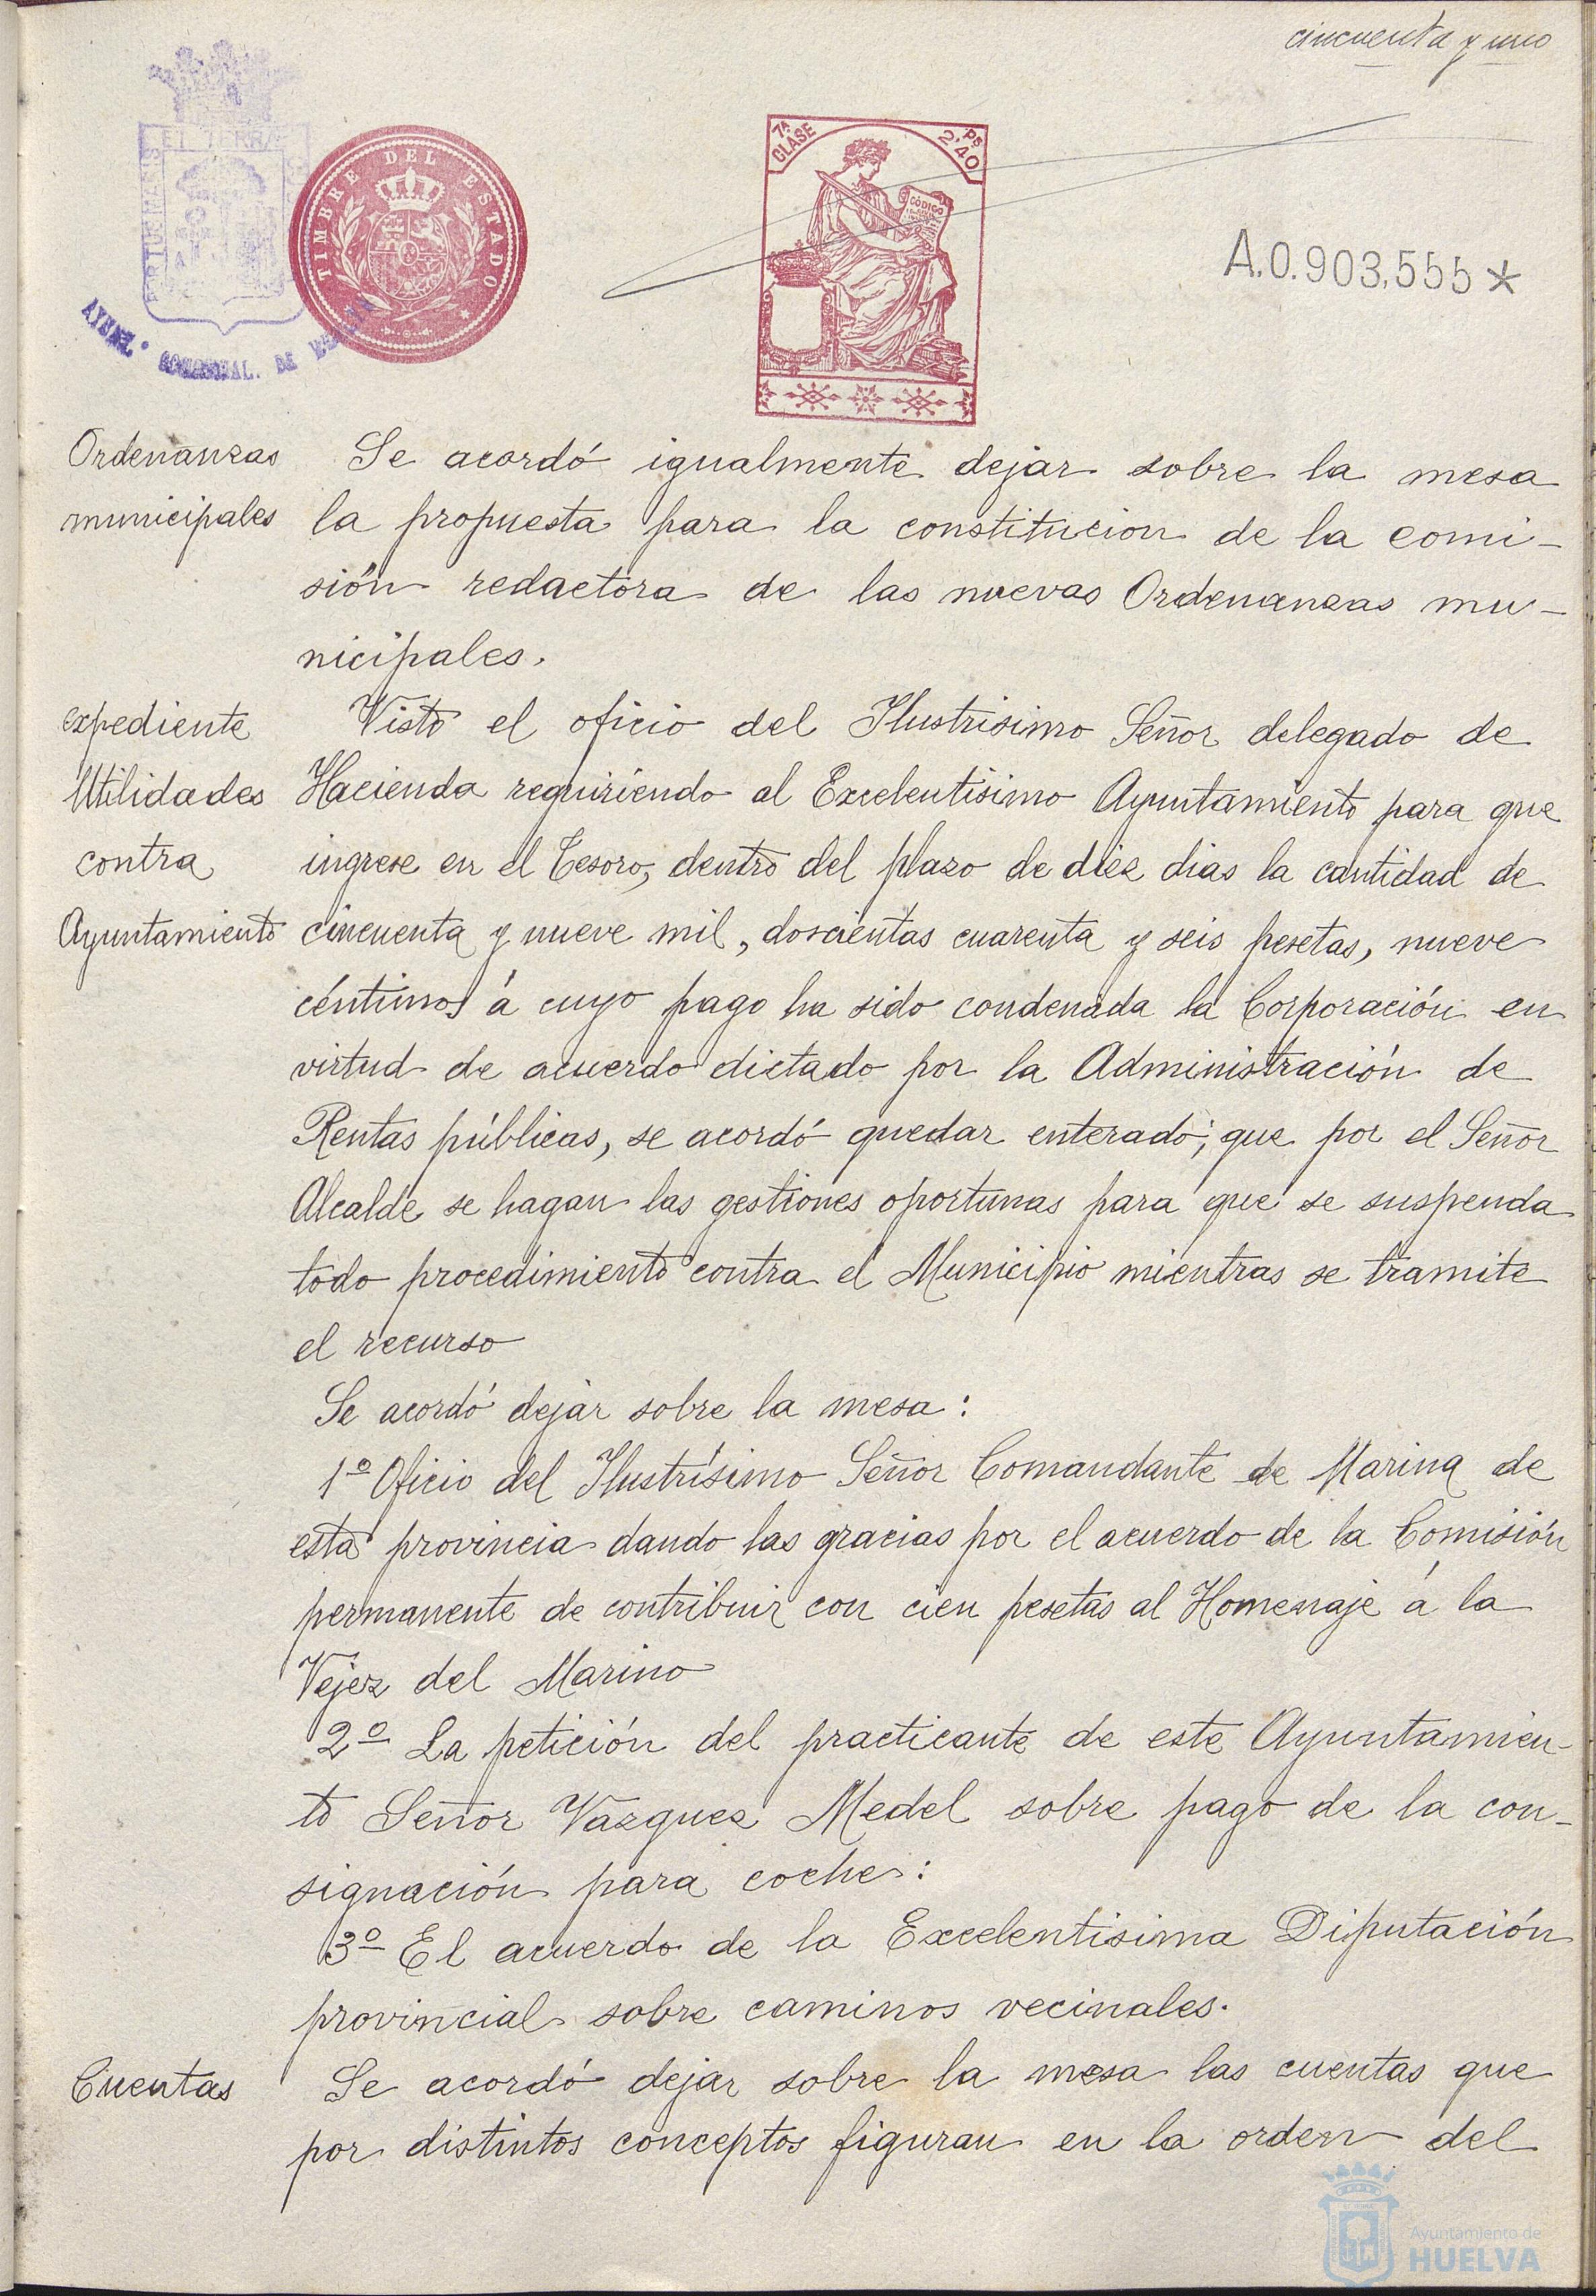 cincuenta y uno
TIMBRE DEL ESTADO
7ª CLASE
2'40 Ps
CÓDIGO
A.0.903,555*
Ordenanzas
municipales
Se acordó igualmente dejar sobre la mesa
la propuesta para la constitucion de la comi-
sión redactora de las nuevas Ordenanzas mu-
nicipales.
expediente
Utilidades
contra
Ayuntamiento
Visto el oficio del Ilustrisimo Señor delegado de
Hacienda requiriendo al Excelentisimo Ayuntamiento para que
ingrese en el Tesoro, dentro del plazo de diez dias la cantidad de
cincuenta y nueve mil, doscientas cuarenta y seis pesetas, nueve
céntimos á cuyo pago ha sido condenada la Corporación en
virtud de acuerdo dictado por la Administración de
Rentas públicas, se acordó quedar enterado; que por el Señor
Alcalde se hagan las gestiones oportunas para que se suspenda
todo procedimiento contra el Municipio mientras se tramite
el recurso
Se acordó dejar sobre la mesa:
1º Oficio del Ilustrísimo Señor Comandante de Marina de
esta provincia dando las gracias por el acuerdo de la Comisión
permanente de contribuir con cien pesetas al Homenaje á la
Vejez del Marino
2º La petición del practicante de este Ayuntamien-
to Señor Vazquez Medel sobre pago de la con-
signación para coche:
3º El acuerdo de la Excelentisima Diputación
provincial sobre caminos vecinales.
Cuentas
Se acordó dejar sobre la mesa las cuentas que
por distintos conceptos figuran en la orden del
Ayuntamiento de
HUELVA